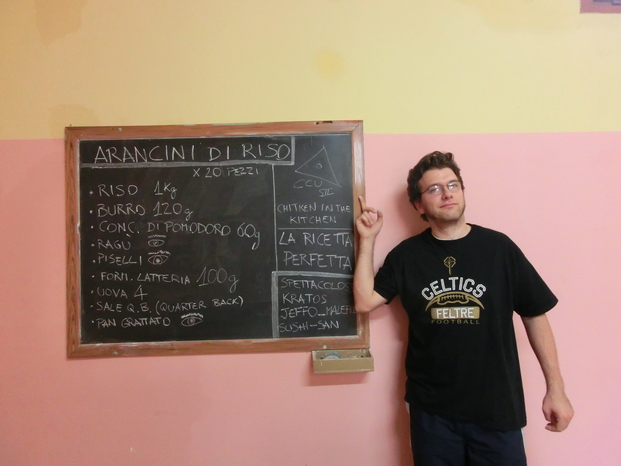 ARANCINI DI RISO
X 20 PEZZI
• RISO 1Kg
• BURRO 120g
• CONC. DI POMODORO 60g
• RAGÙ
• PISELLI
• FORM. LATTERIA 100g
• UOVA 4
• SALE Q.B. (QUARTER BACK)
• PAN GRATTATO
CCU
CHITKEN IN THE
KITCHEN
LA RICETTA
PERFETTA
SPETTACOLO
KRATOS
SUSHI-SAN
CELTICS
FELTRE
FOOTBALL